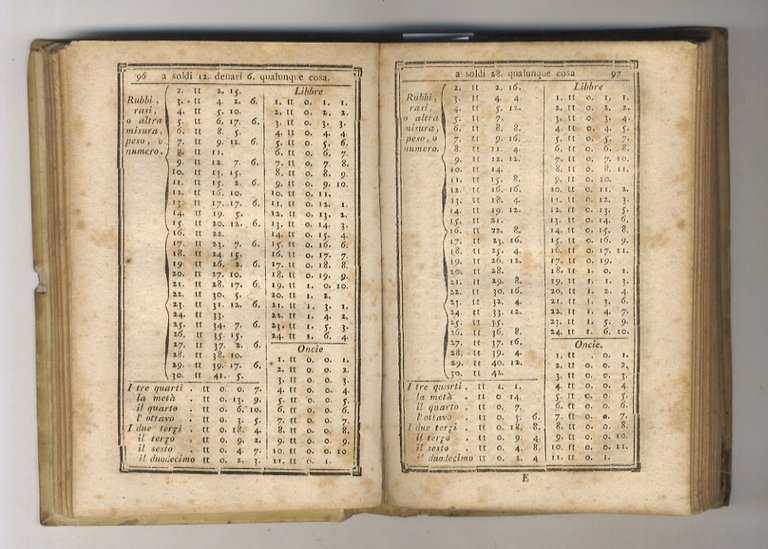 96 a soldi 27. denari 6. qualunque cosa.
2. tt 2. 15.
Rubbi, 3. tt 4. 2. 6.
rasi, 4. tt 5. 10.
o altra 5. tt 6. 17. 6.
misura, 6. tt 8. 5.
peso, o 7. tt 9. 12. 6.
numero. 8. tt 11.
9. tt 12. 7. 6.
10. tt 13. 15.
11. tt 15. 2. 6.
12. tt 16. 10.
13. tt 17. 17. 6.
14. tt 19. 5.
15. tt 20. 12. 6.
16. tt 22.
17. tt 23. 7. 6.
18. tt 24. 15.
19. tt 26. 2. 6.
20. tt 27. 10.
21. tt 28. 17. 6.
22. tt 30. 5.
23. tt 31. 12. 6.
24. tt 33.
25. tt 34. 7. 6.
26. tt 35. 15.
27. tt 37. 2. 6.
28. tt 38. 10.
29. tt 39. 17. 6.
30. tt 41. 5.
I tre quarti . tt 0. 0. 7.
la metà . tt 0. 13. 9.
il quarto . tt 0. 6. 10.
l'ottavo . tt 0. 3. 5.
I due terzi . tt 0. 18. 4.
il terzo . tt 0. 9. 2.
il sesto . tt 0. 4. 7.
il duodecimo tt 0. 2. 3.
Libbre
1. tt 0. 1. 1.
2. tt 0. 2. 2.
3. tt 0. 3. 3.
4. tt 0. 4. 4.
5. tt 0. 5. 6.
6. tt 0. 6. 7.
7. tt 0. 7. 8.
8. tt 0. 8. 9.
9. tt 0. 9. 10.
10. tt 0. 11.
11. tt 0. 12. 1.
12. tt 0. 13. 2.
13. tt 0. 14. 3.
14. tt 0. 15. 4.
15. tt 0. 16. 6.
16. tt 0. 17. 7.
17. tt 0. 18. 8.
18. tt 0. 19. 9.
19. tt 1. 0. 10.
20. tt 1. 2.
21. tt 1. 3. 1.
22. tt 1. 4. 2.
23. tt 1. 5. 3.
24. tt 1. 6. 4.
Oncie
1. tt 0. 0. 1.
2. tt 0. 0. 2.
3. tt 0. 0. 3.
4. tt 0. 0. 4.
5. tt 0. 0. 5.
6. tt 0. 0. 6.
7. tt 0. 0. 7.
8. tt 0. 0. 8.
9. tt 0. 0. 9.
10. tt 0. 0. 10
11. tt 0. 1.
a soldi 28. qualunque cosa 97
2. tt 2. 16.
Rubbi, 3. tt 4. 4.
rasi, 4. tt 5. 12.
o altra 5. tt 7.
misura, 6. tt 8. 8.
peso, o 7. tt 9. 16.
numero. 8. tt 11. 4.
9. tt 12. 12.
10. tt 14.
11. tt 15. 8.
12. tt 16. 16.
13. tt 18. 4.
14. tt 19. 12.
15. tt 21.
16. tt 22. 8.
17. tt 23. 16.
18. tt 25. 4.
19. tt 26. 12.
20. tt 28.
21. tt 29. 8.
22. tt 30. 16.
23. tt 32. 4.
24. tt 33. 12.
25. tt 35.
26. tt 36. 8.
27. tt 37. 16.
28. tt 39. 4.
29. tt 40. 12.
30. tt 42.
I tre quarti . tt 1. 1.
la metà . tt 0 14.
il quarto . tt 0. 7.
l'ottavo . tt 0. 3. 6.
I due terzi . tt 0. 18. 8.
il terzo . tt 0. 9. 4
il sesto . tt 0. 4. 8.
il duodecimo tt 0. 2. 4
Libbre
1. tt 0. 1. 1.
2. tt 0. 2. 2.
3. tt 0. 3. 4.
4. tt 0. 4. 5.
5. tt 0. 5. 7.
6. tt 0. 6. 8.
7. tt 0. 7. 10.
8. tt 0. 8. 11.
9. tt 0. 10.
10. tt 0. 11. 2.
11. tt 0. 12. 3.
12. tt 0. 13. 5.
13. tt 0. 14. 6.
14. tt 0. 15. 8.
15. tt 0. 16. 9.
16. tt 0. 17. 11.
17. tt 0. 19.
18. tt 1. 0. 1.
19. tt 1. 1. 3.
20. tt 1. 2. 4.
21. tt 1. 3. 6.
22. tt 1. 4. 7.
23. tt 1. 5. 9.
24. tt 1. 6. 10.
Oncie.
1. tt . 0. 1.
2. tt 0. 0. 2.
3. tt 0. 0. 3.
4. tt 0. 0. 4.
5. tt 0. 0. 5.
6. tt 0. 0. 6.
7. tt 0. 0. 7.
8. tt 0. 0. 8.
9. tt 0. 0. 10.
10. tt 0. 0. 11.
11. tt 0. 1.
E